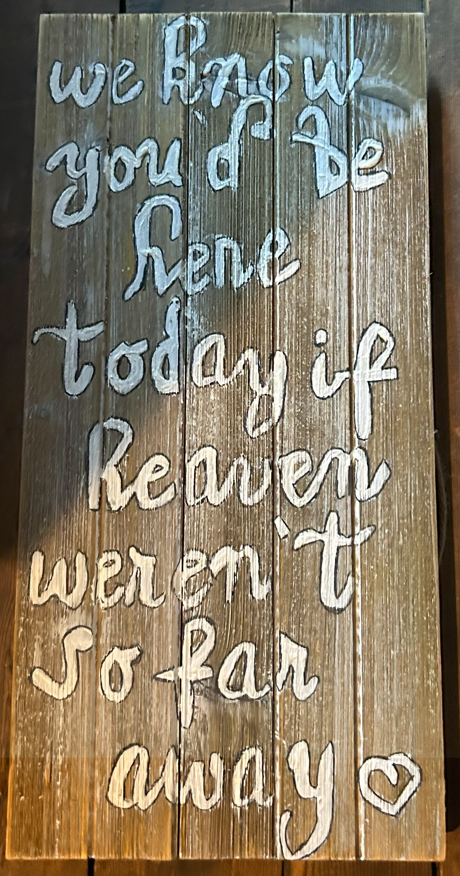 we know
you'd be
here
today if
heaven
weren't
so far
away♡